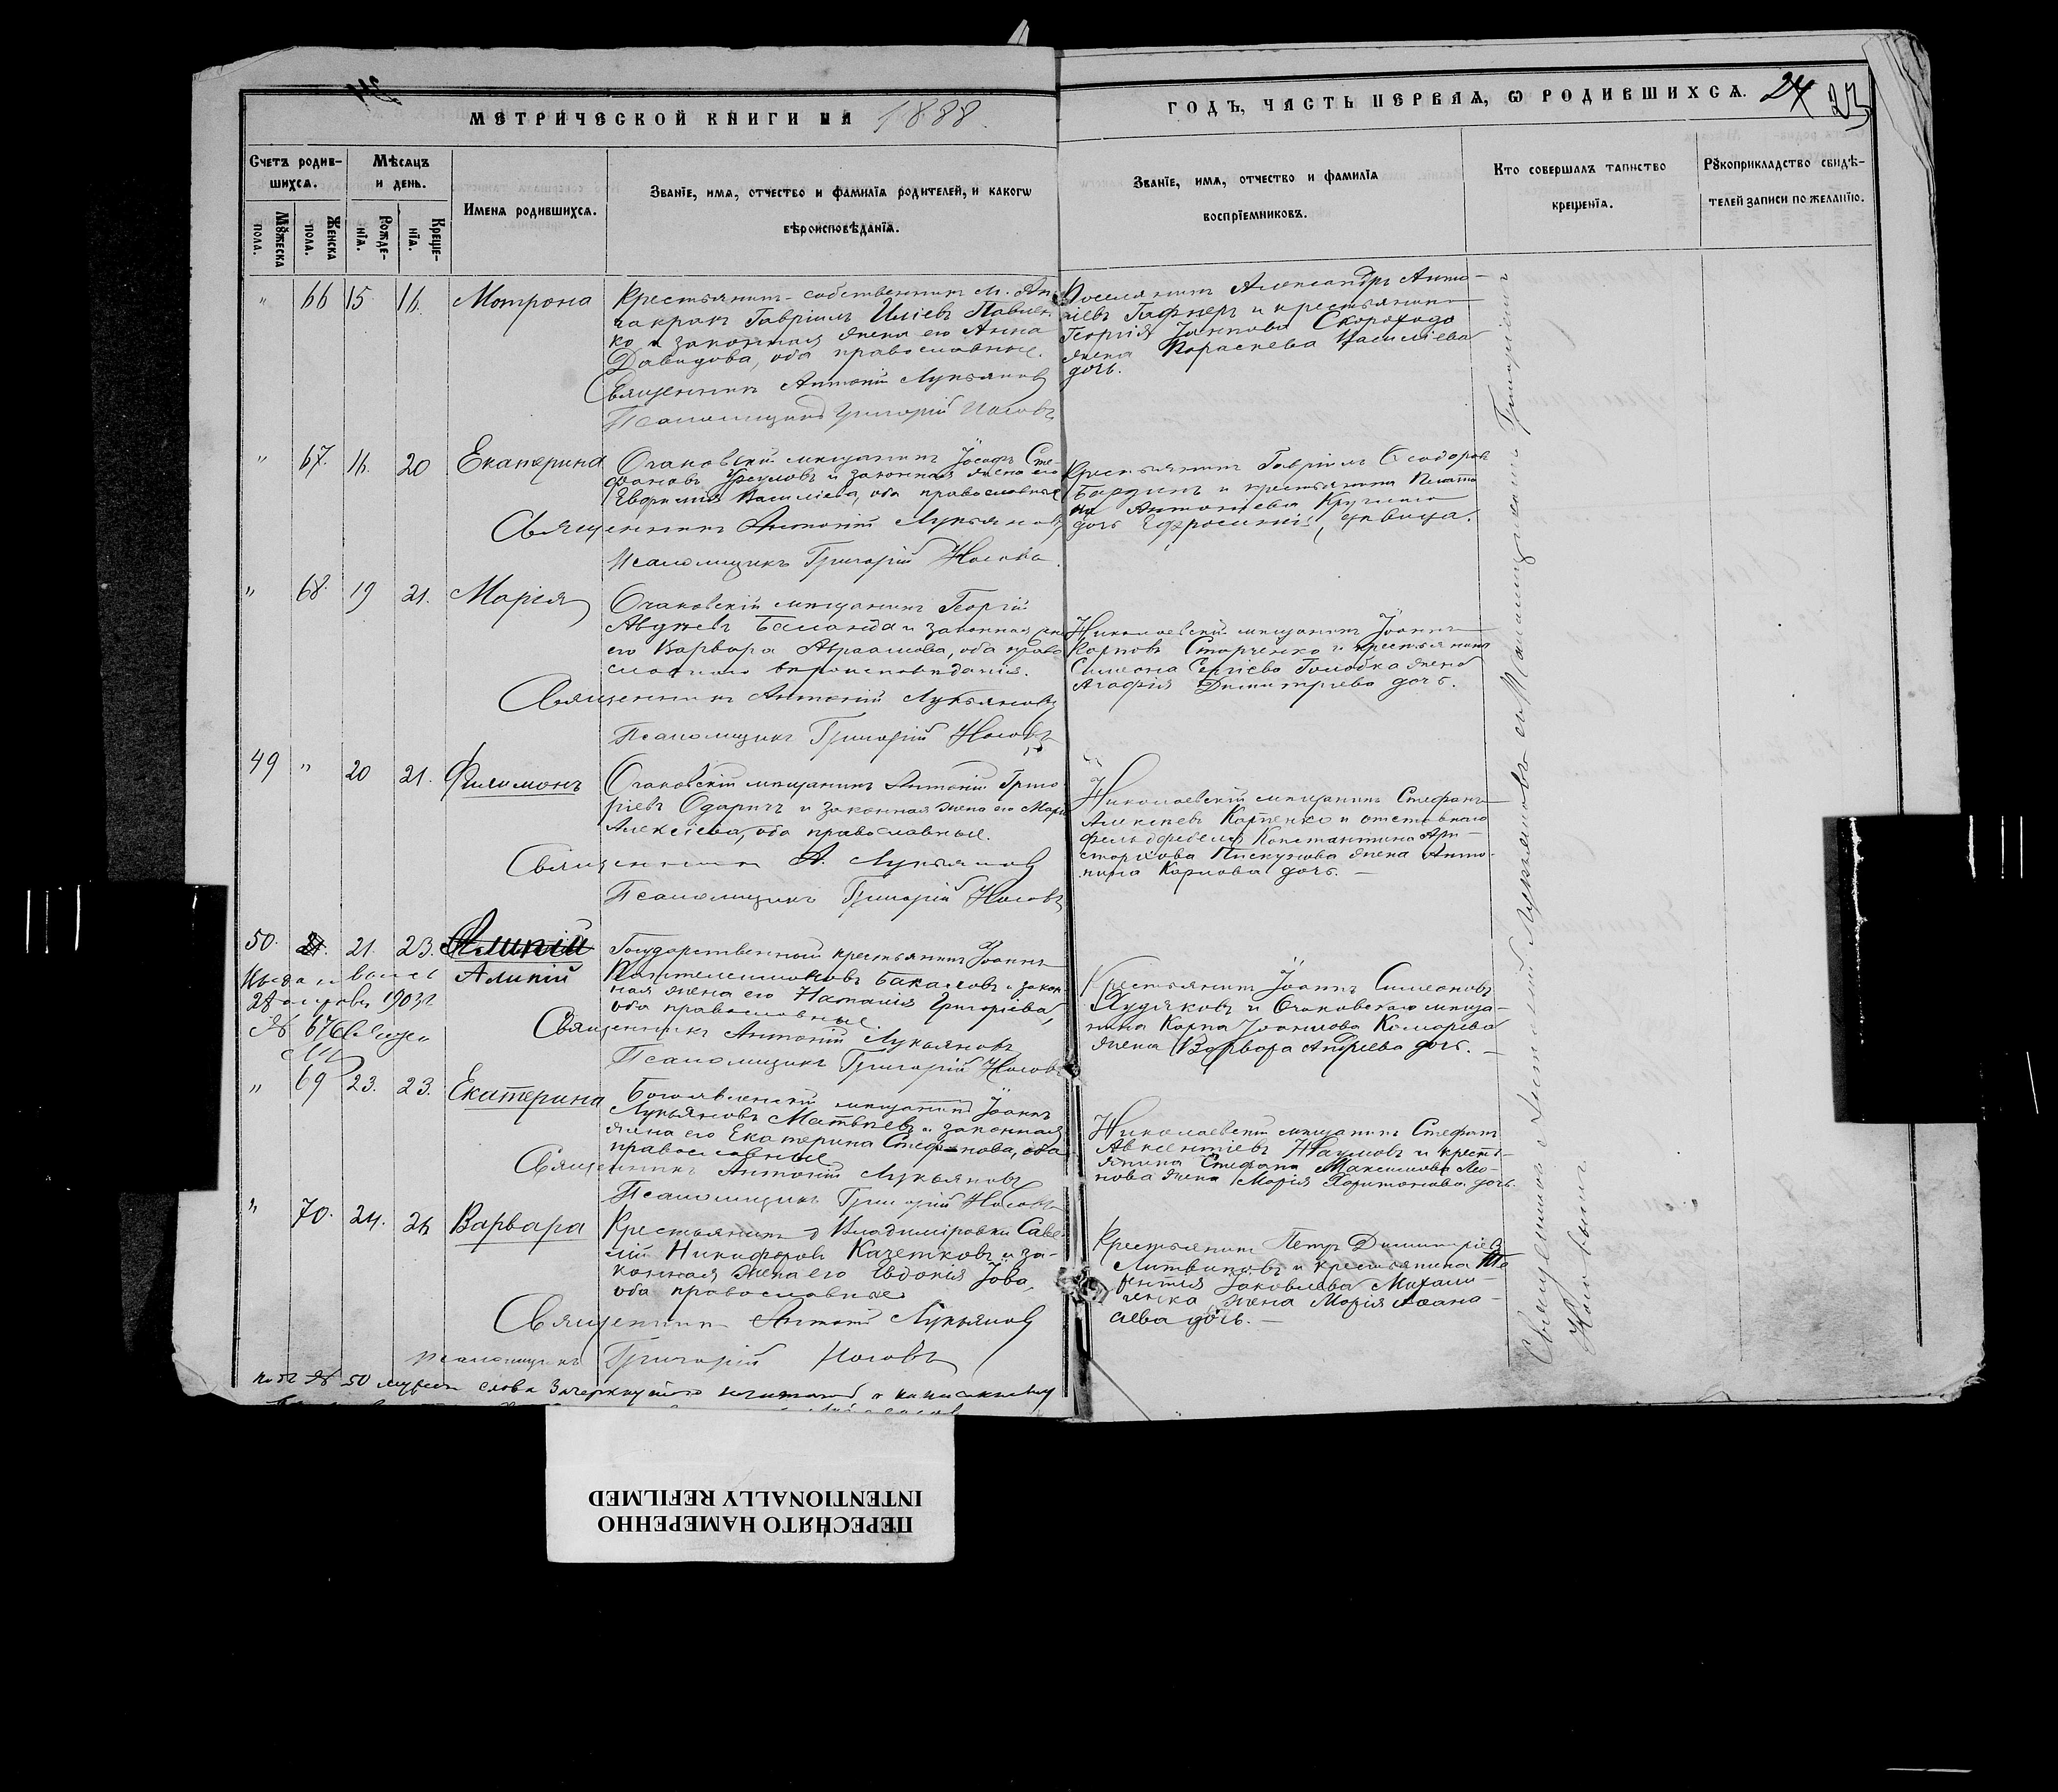 МЕТРИЧЕСКОЙ КНИГИ НА 1888.
ГОДЪ, ЧАСТЬ ПЕРВАЯ, Ѡ РОДИВШИХСѦ. 24 23
Счетъ родив-
шихсѧ.
Мѣсѧцъ
и день.
Имена родившихсѧ.
Званїе, имѧ, отчество и фамилїѧ родителей, и какогѡ
вѣроисповѣданїѧ.
Званїе, имѧ, отчество и фамилїѧ
воспрїемниковъ.
Кто совершалъ таинство
крещенїѧ.
Рꙋкоприкладство свидѣ-
телей записи по желанїю.
Мꙋжеска
пола.
Женска
пола.
Рожде-
нїѧ.
Креще-
нїѧ.
" 66 15 16. Мотрона
Крестьянинъ-собственникъ м. Ан-
чакракъ Гавріилъ Иліевъ Павлен-
ко и законная жена его Анна
Давидова, оба православные.
Священникъ Антоній Лукьяновъ
Псаломщикъ Григорій Носовъ
Поселянинъ Александръ Анто-
ніевъ Гафнеръ и крестьянина
Георгія Скорохода
жена Параскева Василіева
дочь.
" 67. 16. 20 Екатерина
Очаковскій мѣщанинъ Іосифъ Сте-
фановъ Урсуловъ и законная жена его
Евфимія Василіева, оба православные
Священникъ Антоній Лукьяновъ
Псаломщикъ Григорій Носовъ
Крестьянинъ Гавріилъ Ѳеодоровъ
и крестьянина
Антоніева
дочь Ефросинія, дѣвица.
" 68. 19 21. Марія
Очаковскій мѣщанинъ Георгій
Баланда и законная жена
его Варвара Авраамова, оба право
славнаго вѣроисповѣданія.
Священникъ Антоній Лукьяновъ
Псаломщикъ Григорій Носовъ
Николаевскій мѣщанинъ Іоаннъ
Карповъ Старченко и крестьянина
Симеона Сергіева Голобка жена
Агафія Димитріева дочь.
49 " 20 21. Филимонъ
Очаковскій мѣщанинъ Антоній Григо
ріевъ Одаричъ и законная жена его Марія
Алексіева, оба православные.
Священникъ А. Лукьяновъ
Псаломщикъ Григорій Носовъ
Николаевскій мѣщанинъ Стефанъ
Алексѣевъ Карпенко и отставнаго
фельдфебеля Константина Ари-
стархова Пискунова жена Анто-
нина Карпова дочь. —
50. 21. 23. Алипій
Алипій
28 1903 г.
№ 676
Государственный крестьянинъ Іоаннъ
Пантелеимоновъ Бакаловъ и закон-
ная жена его Наталія Григоріева,
оба православные.
Священникъ Антоній Лукьяновъ
Псаломщикъ Григорій Носовъ
Крестьянинъ Іоаннъ Симеоновъ
Худяковъ и Очаковскаго мѣща-
нина Карпа Іоаннова Комарева
жена Варвара Андреева дочь. —
" 69 23. 23. Екатерина
Богоявленскій мѣщанинъ Іоаннъ
Лукьяновъ Матвѣевъ и законная
жена его Екатерина Стефанова, оба
православные
Священникъ Антоній Лукьяновъ
Псаломщикъ Григорій Носовъ
Николаевскій мѣщанинъ Стефанъ
Авксентіевъ Наумовъ и кресть-
янина Стефана Максимова Лео-
нова жена Марія Харитонова дочь.
" 70. 24. 26 Варвара
Крестьянинъ д Владиміровки Саве-
лій Никифоровъ Казетковъ и за-
конная жена его Евдокія Іова,
оба православные
Священникъ Антоній Лукьяновъ
псаломщикъ Григорій Носовъ
Крестьянинъ Петръ Димитріевъ
Литвиновъ и крестьянина Те
рентія Іаковлева Михали-
ченка жена Марія Аѳана-
сіева дочь. —
Священникъ Антоній Лукьяновъ съ Псаломщикомъ Григоріемъ
Носовымъ.
подъ № 50 слова
ПЕРЕСНЯТО НАМЕРЕННО
INTENTIONALLY REFILMED